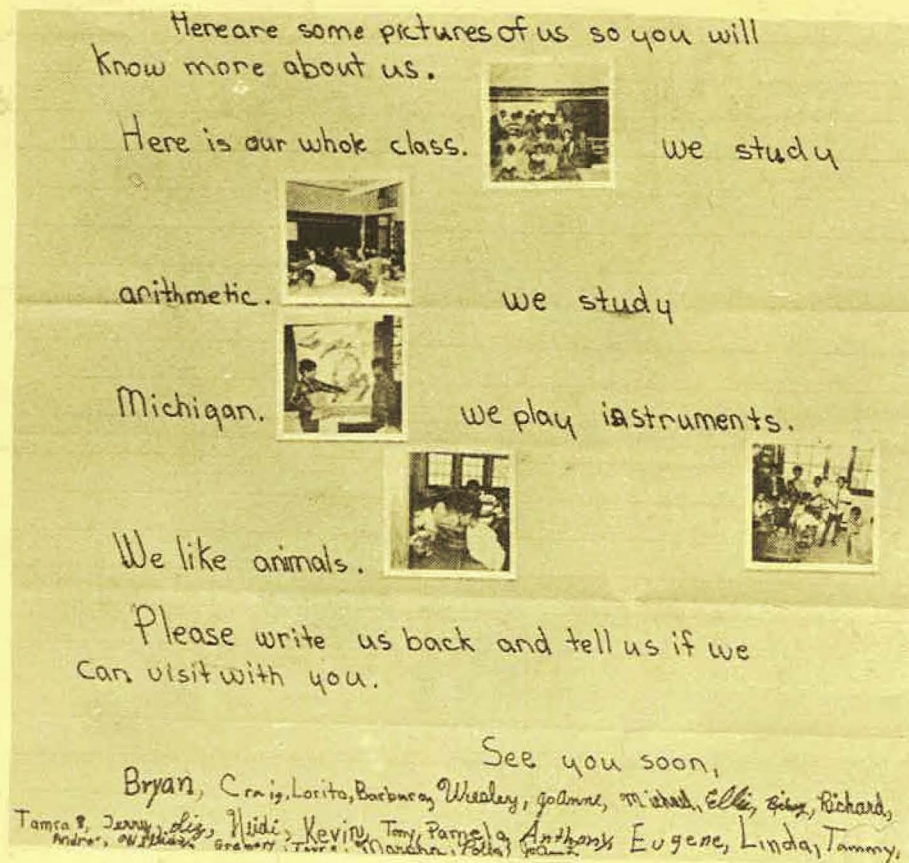 Here are some pictures of us so you will
know more about us.
Here is our whole class. we study
arithmetic. we study
Michigan. we play instruments.
We like animals.
Please write us back and tell us if we
can visit with you.
See you soon,
Bryan, Craig, Lorita, Barbara, Wesley, JoAnne, Michael, Ellie, Richard,
Tamra P., Jerry, Liz, Heidi, Kevin, Tony, Pamela, Anthony, Eugene, Linda, Tammy,
Andre, Gregory, Marsha,